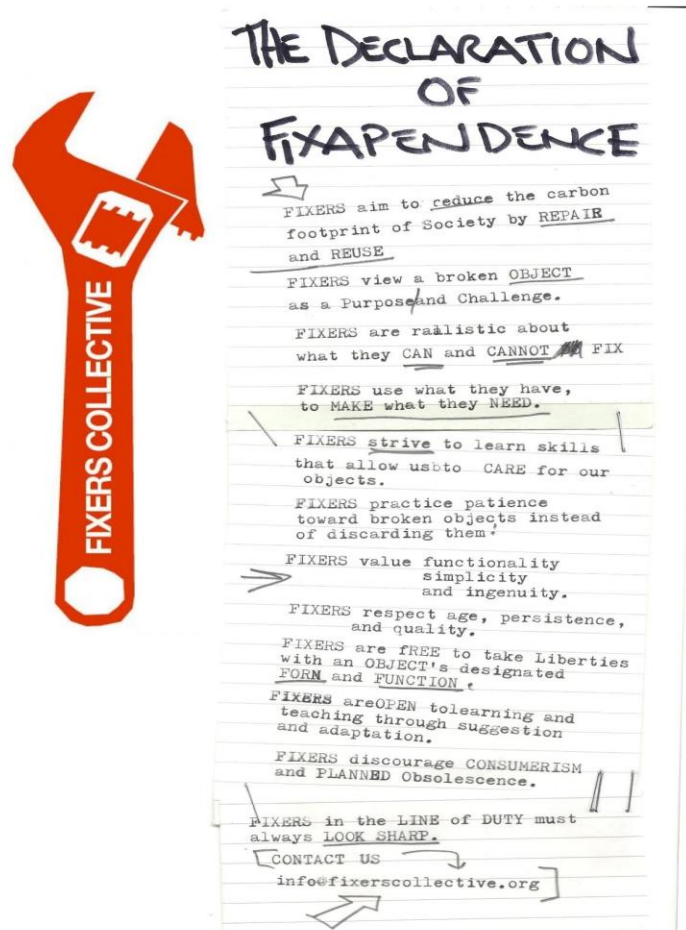 THE DECLARATION
OF
FIXAPENDENCE
FIXERS COLLECTIVE
FIXERS aim to reduce the carbon
footprint of Society by REPAIR
and REUSE
FIXERS view a broken OBJECT
as a Purpose/and Challenge.
FIXERS are raalistic about
what they CAN and CANNOT FIX
FIXERS use what they have,
to MAKE what they NEED.
FIXERS strive to learn skills
that allow usbto CARE for our
objects.
FIXERS practice patience
toward broken objects instead
of discarding them!
FIXERS value functionality
simplicity
and ingenuity.
FIXERS respect age, persistence,
and quality.
FIXERS are fREE to take Liberties
with an OBJECT's designated
FORM and FUNCTION.
FIXERS areOPEN tolearning and
teaching through suggestion
and adaptation.
FIXERS discourage CONSUMERISM
and PLANNED Obsolescence.
FIXERS in the LINE of DUTY must
always LOOK SHARP.
CONTACT US
info@fixerscollective.org